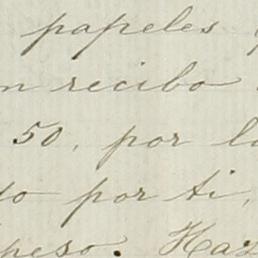 papeles
n recibo
50, por l
o por ti,
peso. Haz